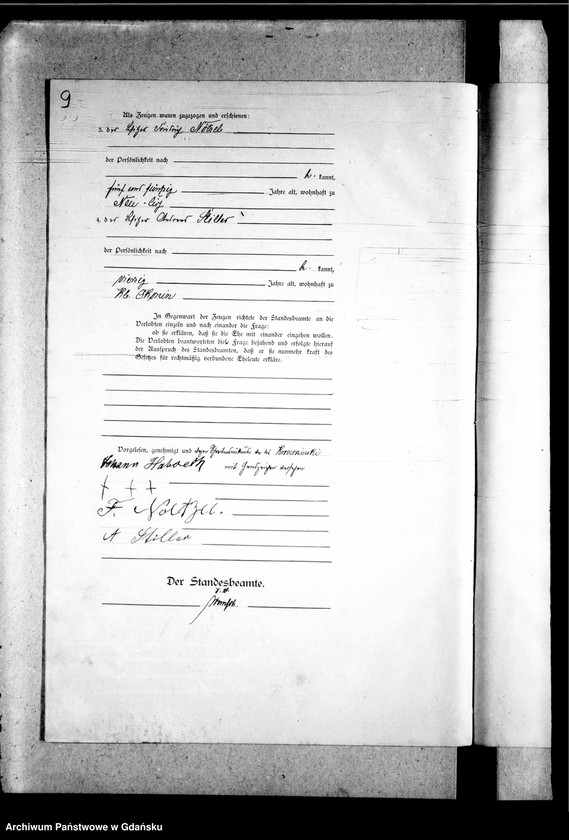 9
Als Zeugen waren zugezogen und erschienen:
3. der Besitzer Friedrich Nötzel
der Persönlichkeit nach
be kannt,
fünf und fünfzig Jahre alt, wohnhaft zu
Neu
4. der Besitzer Andreas Stiller
der Persönlichkeit nach
be kannt,
vierzig Jahre alt, wohnhaft zu
Kl.
In Gegenwart der Zeugen richtete der Standesbeamte an die
Verlobten einzeln und nach einander die Frage:
ob sie erklären, daß sie die Ehe mit einander eingehen wollen.
Die Verlobten beantworteten diese Frage bejahend und erfolgte hierauf
der Ausspruch des Standesbeamten, daß er sie nunmehr kraft des
Gesetzes für rechtmäßig verbundene Eheleute erkläre.
Vorgelesen, genehmigt und wegen Schreibunkunde der
Johann mit Handzeichen versehen
+ + +
F. Noetzel.
A Stiller
Der Standesbeamte.
J. V.
Archiwum Państwowe w Gdańsku